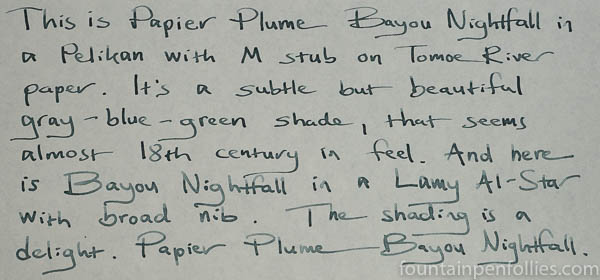 This is Papier Plume Bayou Nightfall in
a Pelikan with M stub on Tomoe River
paper. It's a subtle but beautiful
gray-blue-green shade, that seems
almost 18th century in feel. And here
is Bayou Nightfall in a Lamy Al-Star
with broad nib. The shading is a
delight. Papier Plume Bayou Nightfall.
fountainpenfollies.com